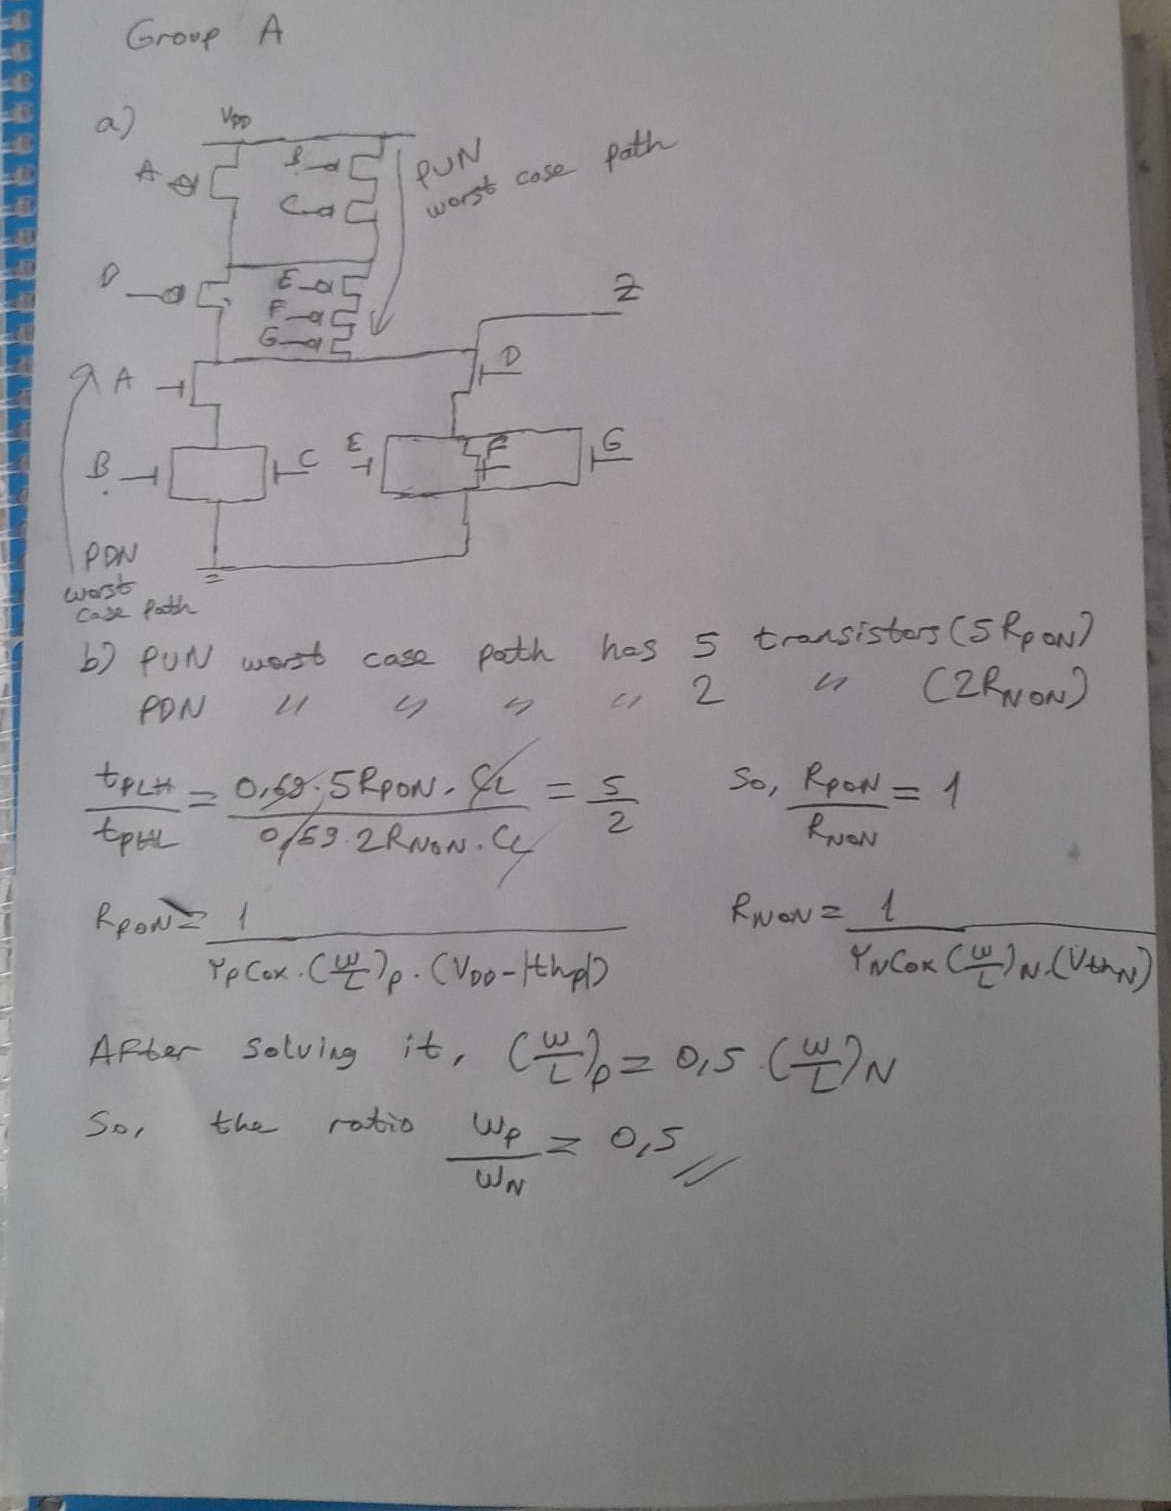 Group A
a)
VDD
A
B
C
PUN
worst case path
D
E
F
G
Z
A
D
B
C
E
F
G
PDN
worst
case path
b) PUN worst case path has 5 transistors (5 RPON)
PDN " " " " 2 " (2RNON)
tPLH/tPHL = 0,69.5RPON.CL / 0,69.2RNON.CL = 5/2 So, RPON/RNON = 1
RPON = 1 / μpCox.(W/L)p.(VDD-|thp|) RNON = 1 / μNCox(W/L)N.(VthN)
After solving it, (W/L)p = 0,5.(W/L)N
So, the ratio Wp/WN = 0,5 //